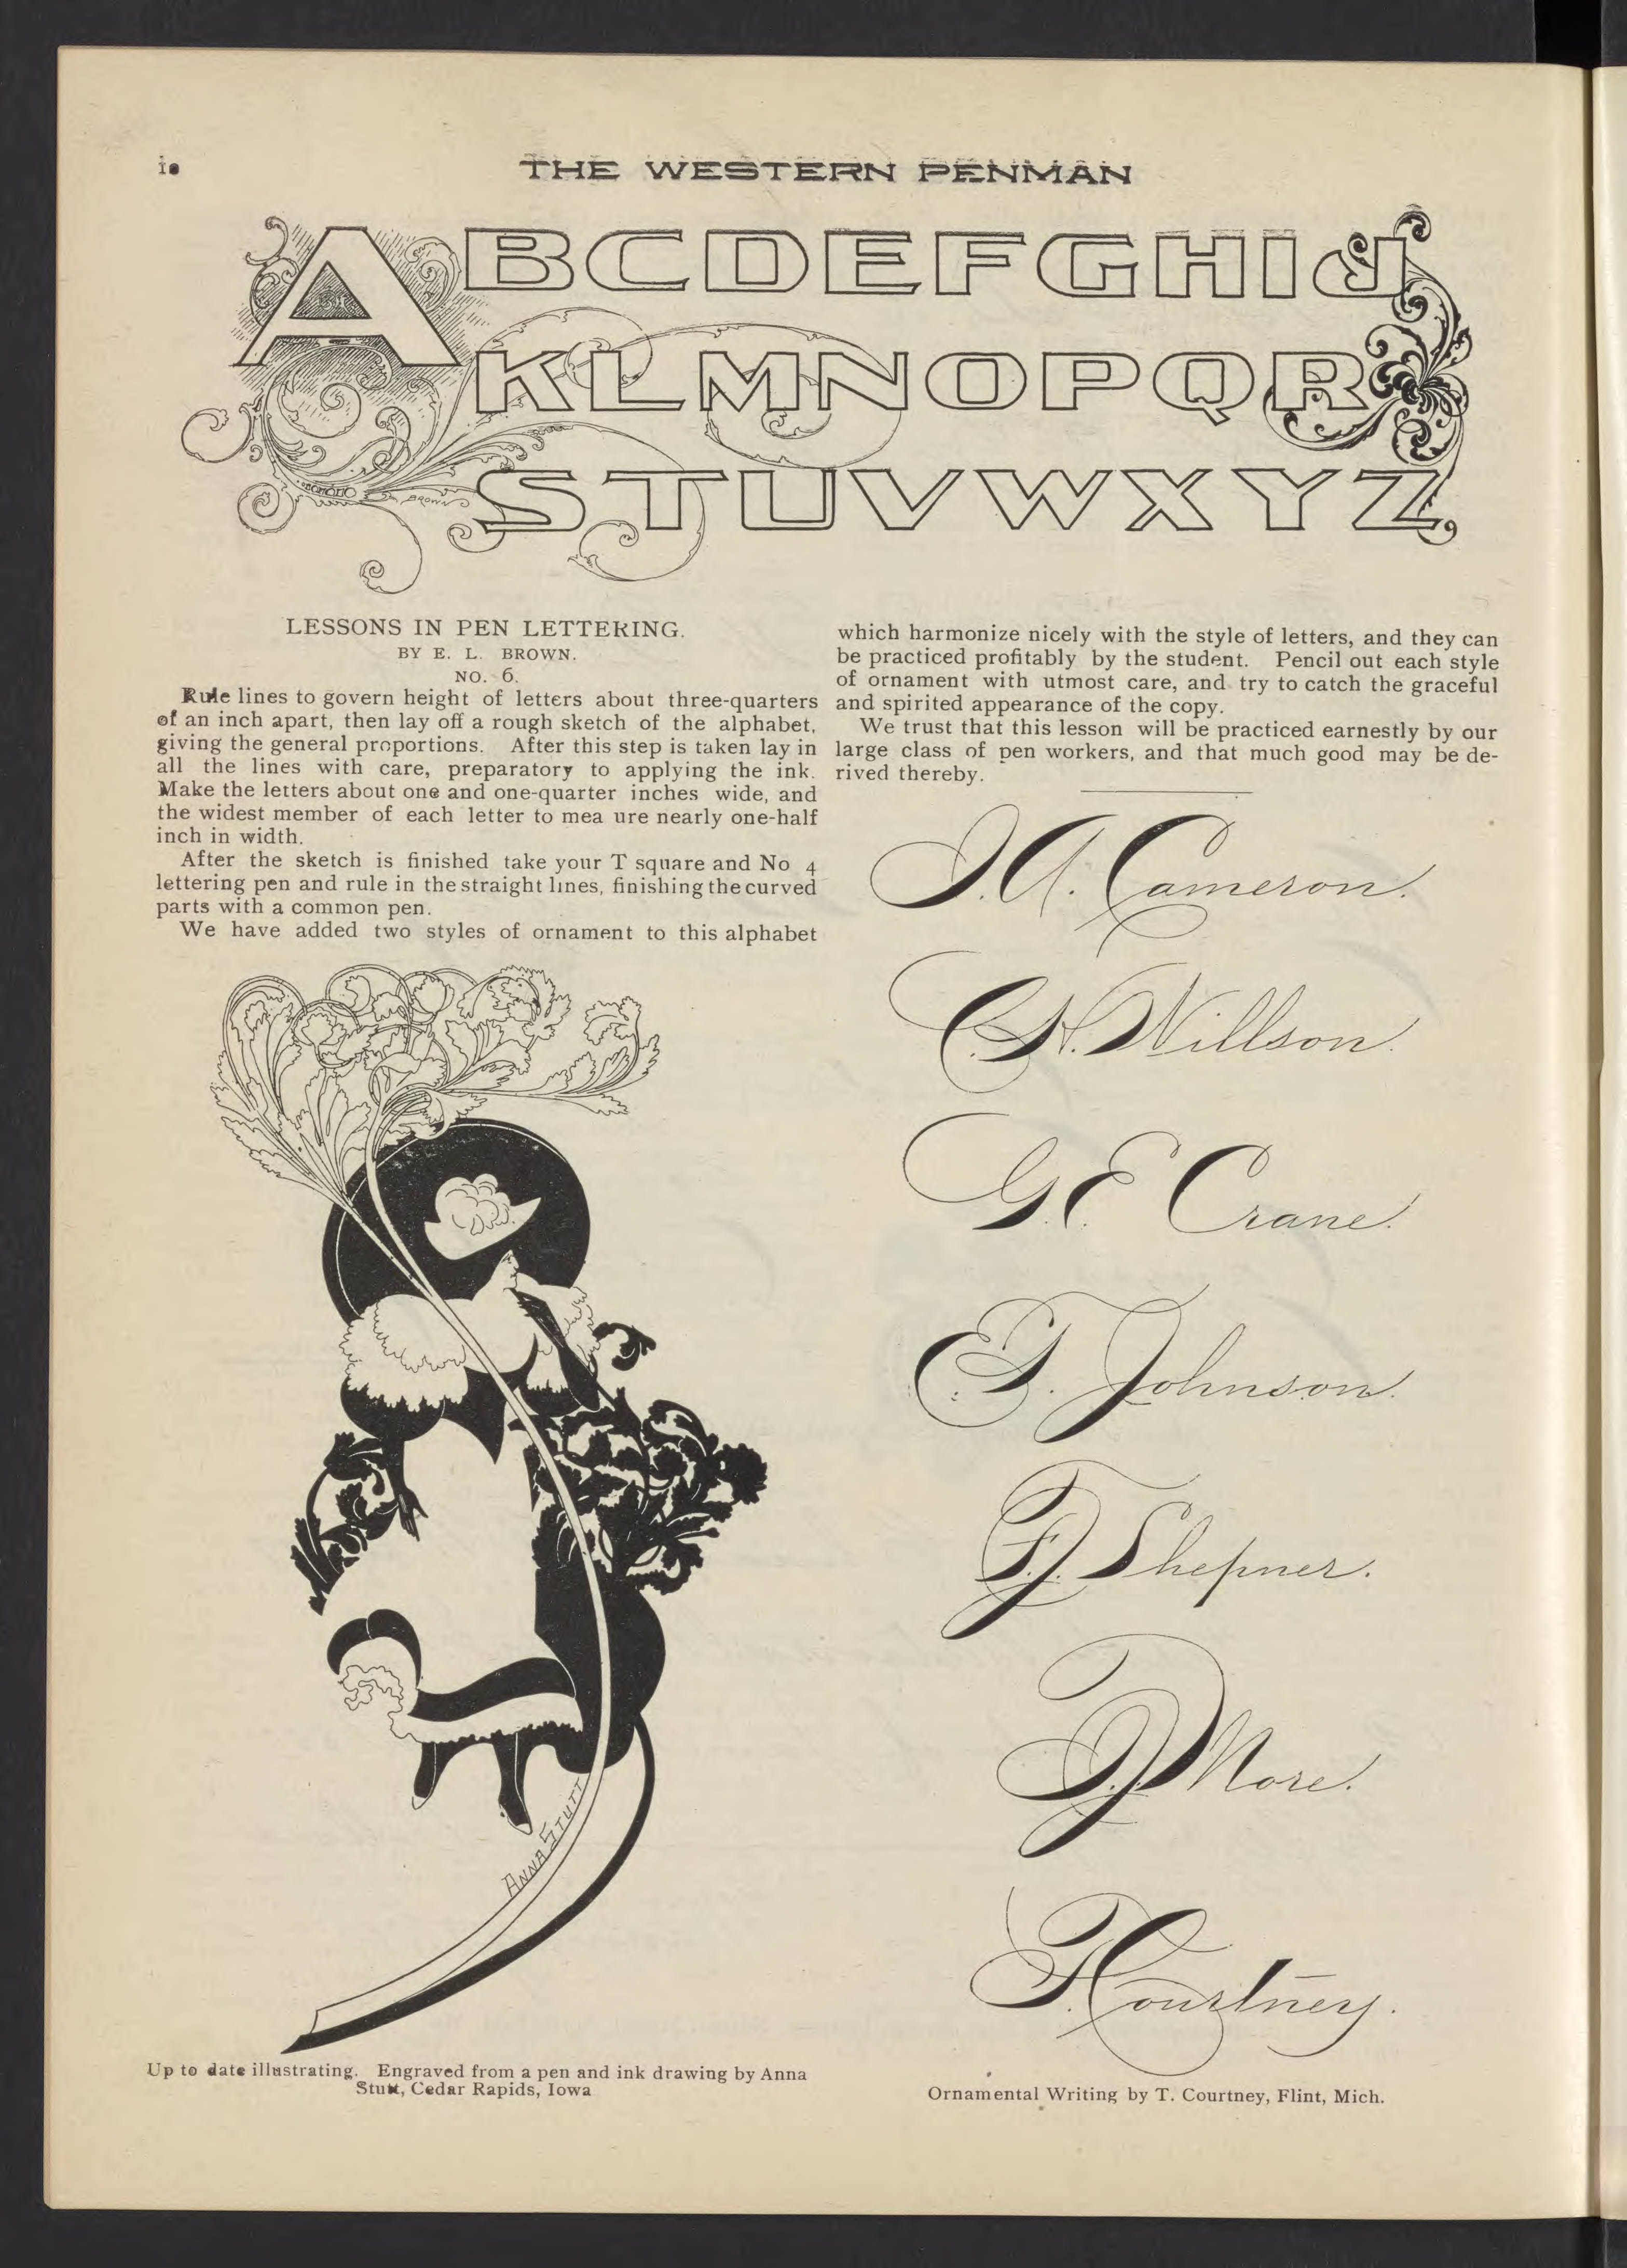 10
THE WESTERN PENMAN
ABCDEFGHIJ
KLMNOPQR
STUVWXYZ
BROWN
LESSONS IN PEN LETTERING.
BY E. L. BROWN.
NO. 6.
Rule lines to govern height of letters about three-quarters
of an inch apart, then lay off a rough sketch of the alphabet,
giving the general proportions. After this step is taken lay in
all the lines with care, preparatory to applying the ink.
Make the letters about one and one-quarter inches wide, and
the widest member of each letter to mea ure nearly one-half
inch in width.
After the sketch is finished take your T square and No 4
lettering pen and rule in the straight lines, finishing the curved
parts with a common pen.
We have added two styles of ornament to this alphabet
which harmonize nicely with the style of letters, and they can
be practiced profitably by the student. Pencil out each style
of ornament with utmost care, and try to catch the graceful
and spirited appearance of the copy.
We trust that this lesson will be practiced earnestly by our
large class of pen workers, and that much good may be de-
rived thereby.
ANNA STUTT
Up to date illustrating. Engraved from a pen and ink drawing by Anna
Stutt, Cedar Rapids, Iowa
I. A. Cameron.
C. H. Willson.
G. E. Crane.
E. G. Johnson.
F. J. Shepner.
More.
T. Courtney.
Ornamental Writing by T. Courtney, Flint, Mich.